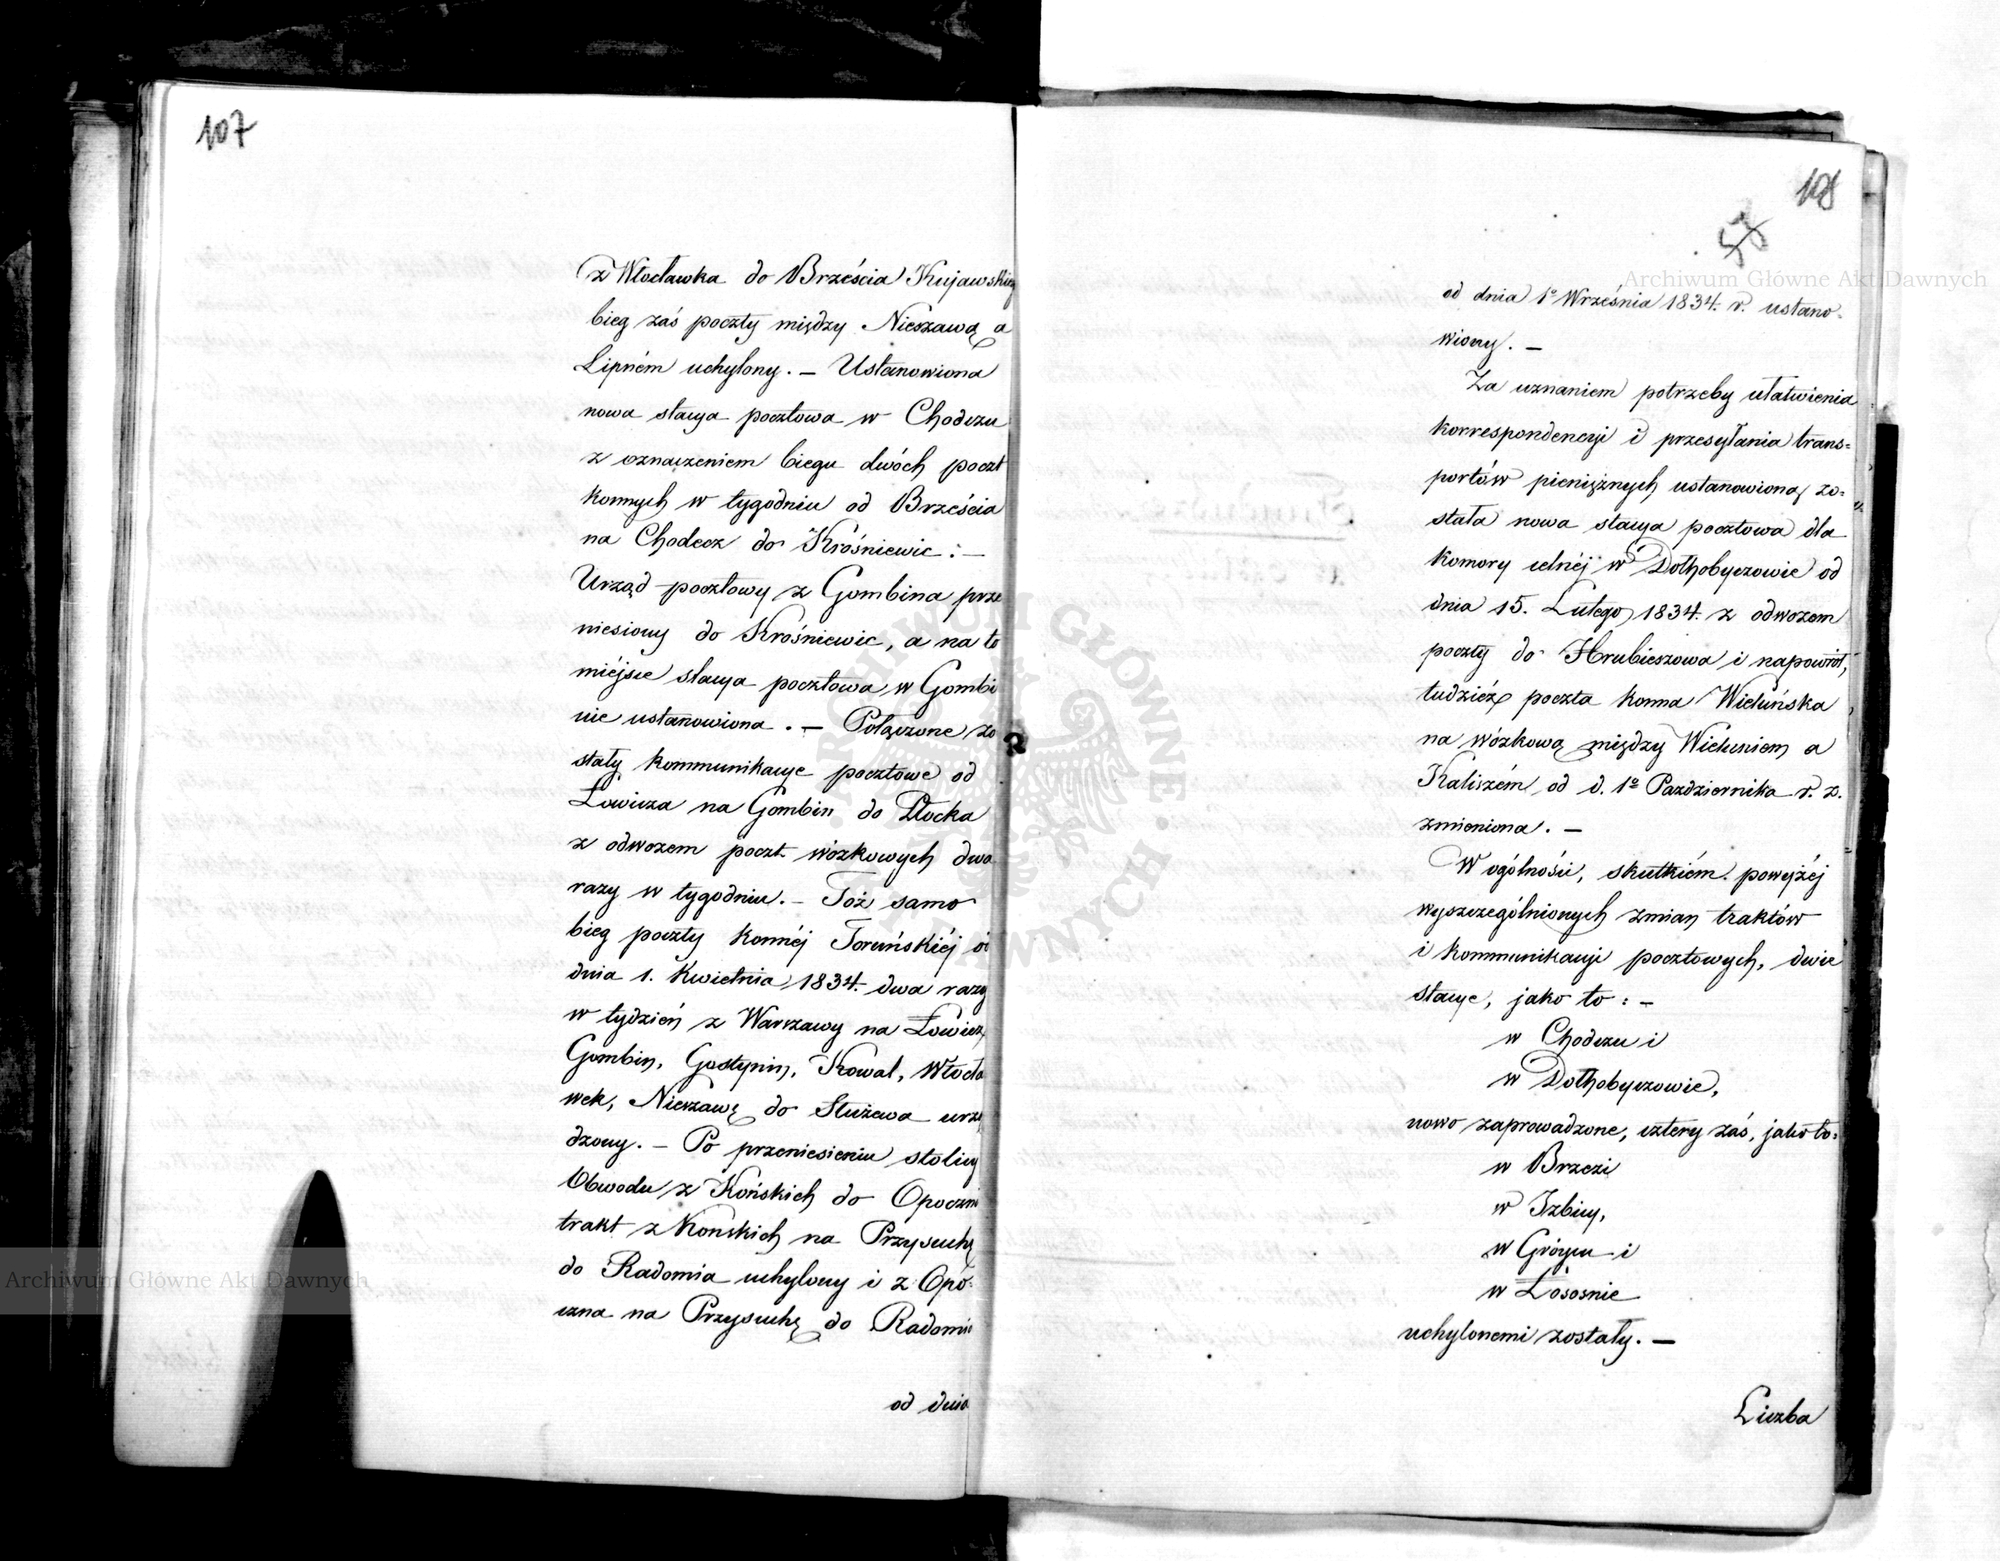 107
z Włocławka do Brześcia Kujawskieg
bieg zaś poczty między Nieszawą a
Lipném uchylony. — Ustanowiona
nowa stacya pocztowa w Chodczu
z oznaczeniem biegu dwóch poczt
konnych w tygodniu od Brześcia
na Chodecz do Krośniewic: —
Urząd pocztowy z Gombina prze
niesiony do Krośniewic, a na to
miéjsce stacya pocztowa w Gombi
nie ustanowiona. — Połączone zo
stały kommunikacye pocztowe od
Łowicza na Gombin do Płocka
z odwozem poczt wózkowych dwa
razy w tygodniu. — Toż samo
bieg poczty konnéj Toruńskiéj o
dnia 1. Kwietnia 1834. dwa razy
w tydzień z Warszawy na Łowicz,
Gombin, Gostynin, Kowal, Włocła
wek, Nieszawę do Służewa urzą
dzony. — Po przeniesieniu stolicy
Obwodu z Końskich do Opoczn
trakt z Końskich na Przysuchę
do Radomia uchylony i z Opo-
czna na Przysuchę do Radomia
od dnia
108
57
Archiwum Główne Akt Dawnych
od dnia 1º Września 1834. r. ustano-
wiony. —
Za uznaniem potrzeby ułatwienia
korrespondencyi i przesyłania trans-
portów pieniężnych ustanowioną zo-
stała nowa stacya pocztowa dla
Komory celnéj w Dołhobyczowie od
dnia 15. Lutego 1834. z odwozem
poczty do Hrubieszowa i napowrót,
tudzież poczta konna Wieluńska
na wózkową między Wieluniem a
Kaliszém od d. 1º Pazdziernika r. z.
zmieniona. —
W ogólności, skutkiém powyżéj
wyszczególnionych zmian traktów
i kommunikacyi pocztowych, dwie
stacye, jako to: —
w Chodczu i
w Dołhobyczowie,
nowo zaprowadzone, cztery zaś, jako to:
w Brzezi
w Izbicy,
w Gróycu i
w Łososnie
uchylonemi zostały. —
Liczba
ARCHIWUM GŁÓWNE AKT DAWNYCH
Archiwum Główne Akt Dawnych